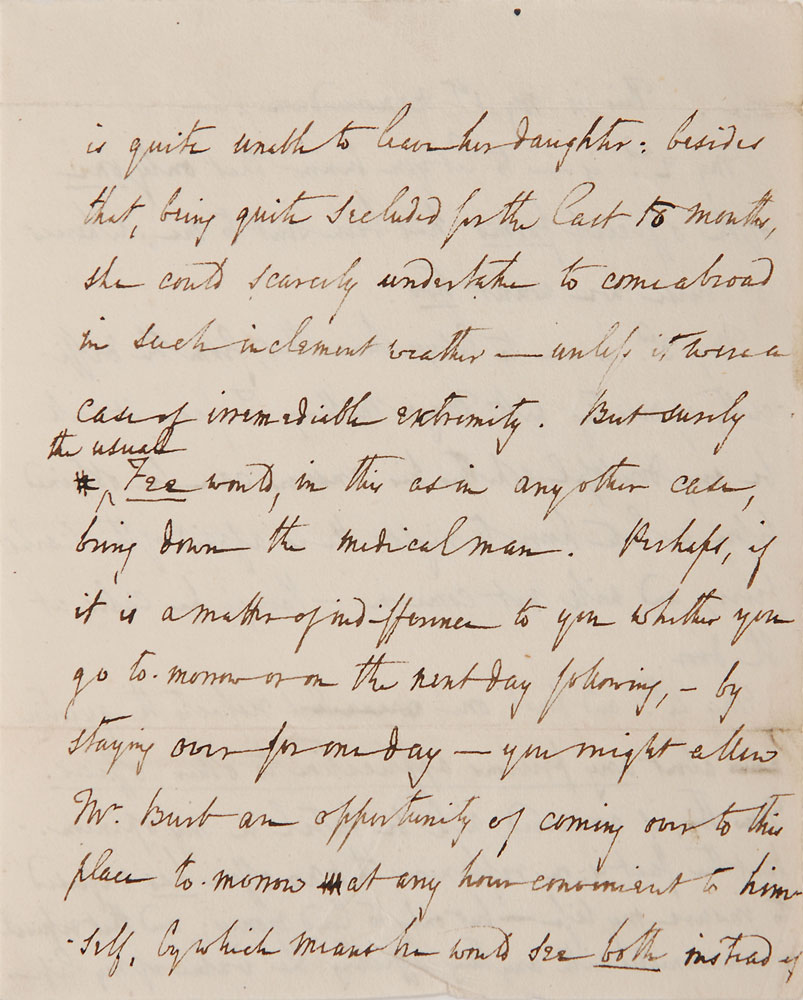 is quite unable to leave her daughter: besides
that, being quite secluded for the last 18 months,
she could scarcely undertake to come abroad
in such inclement weather — unless it were a
case of irremediable extremity. But surely
the usual
^ Fee would, in this as in any other case,
bring down the medical man. Perhaps, if
it is a matter of indifference to you whether you
go to-morrow or on the next day following, — by
staying over for one day — you might allow
Mr. an opportunity of coming over to this
place to-morrow at any hour convenient to him
-self, by which means he would see both instead of